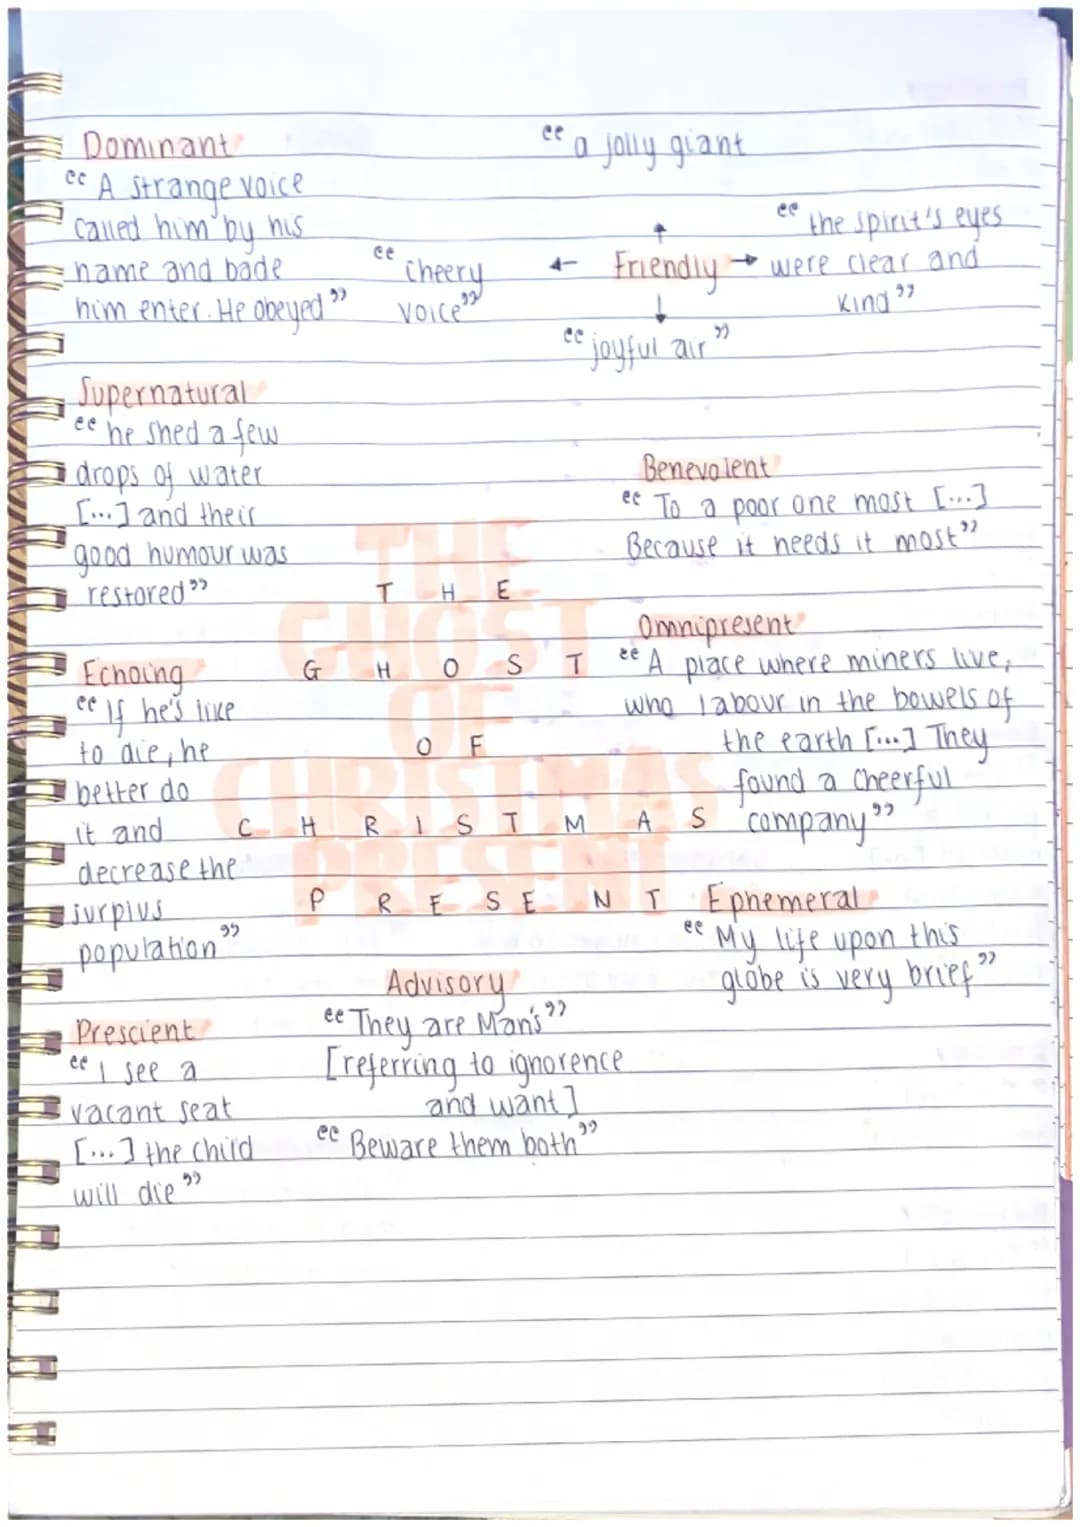 Dominant
"A strange voice
called him by his
name and bade
him enter. He obeyed"
"a jolly giant
"cheery
voice"
Friendly
"the spirit's eyes
were clear and
kind"
"joyful air"
Supernatural
"he shed a few
drops of water
[...] and their
good humour was
restored"
Benevolent
"To a poor one most [...]
Because it needs it most"
Omnipresent
"A place where miners live,
who labour in the bowels of
the earth [...] They
found a cheerful
company"
Echoing
"If he's like
to die, he
better do
it and
decrease the
surplus
population"
THE
GHOST
OF
CHRISTMAS
PRESENT
T H E
G H O S T
O F
C H R I S T M A S
P R E S E N T
Ephemeral
"My life upon this
globe is very brief"
Advisory
"They are Man's"
[referring to ignorence
and want]
"Beware them both"
Prescient
"I see a
vacant seat
[...] the child
will die"